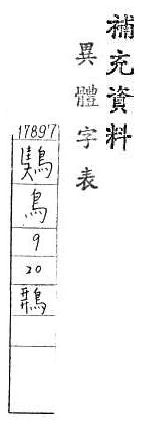 補充資料
異體字表
17897
鶪
鳥
9
20